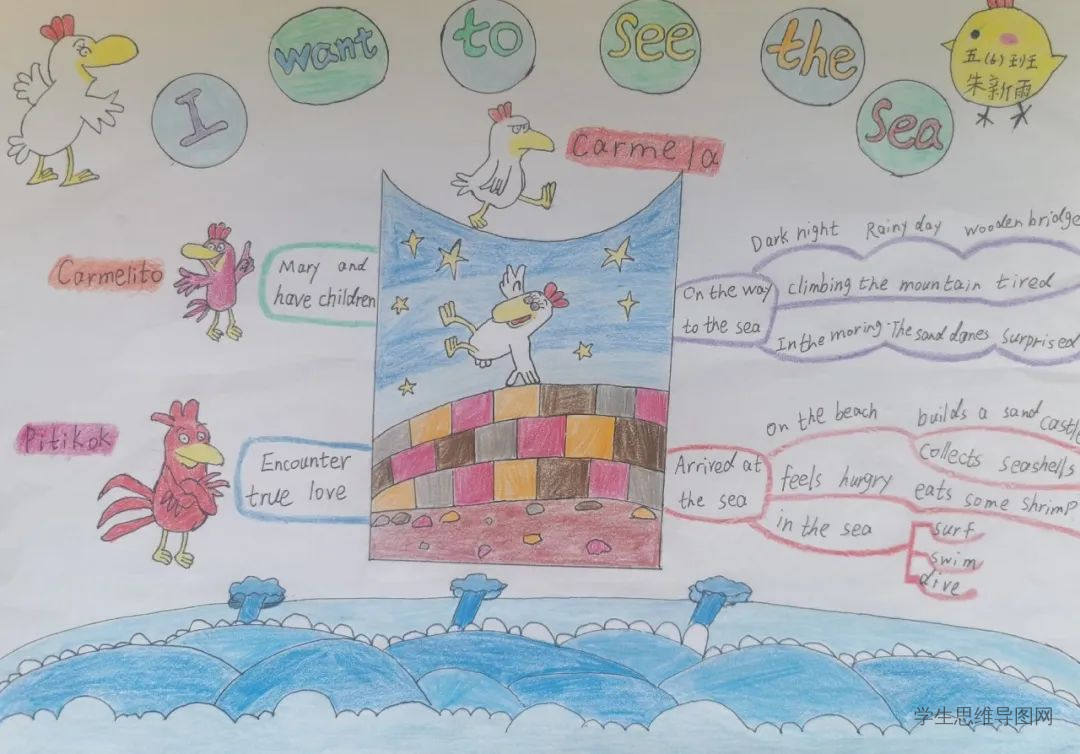 I want to see the sea
五(6)班
朱新雨
Carmela
Carmelito
Mary and
have children
Pitikok
Encounter
true love
On the way
to the sea
Dark night Rainy day wooden bridge
climbing the mountain tired
In the moring The sand danes surprised
Arrived at
the sea
on the beach
builds a sand castle
collects seashells
feels hungry
eats some shrimp
in the sea
surf
swim
dive
学生思维导图网